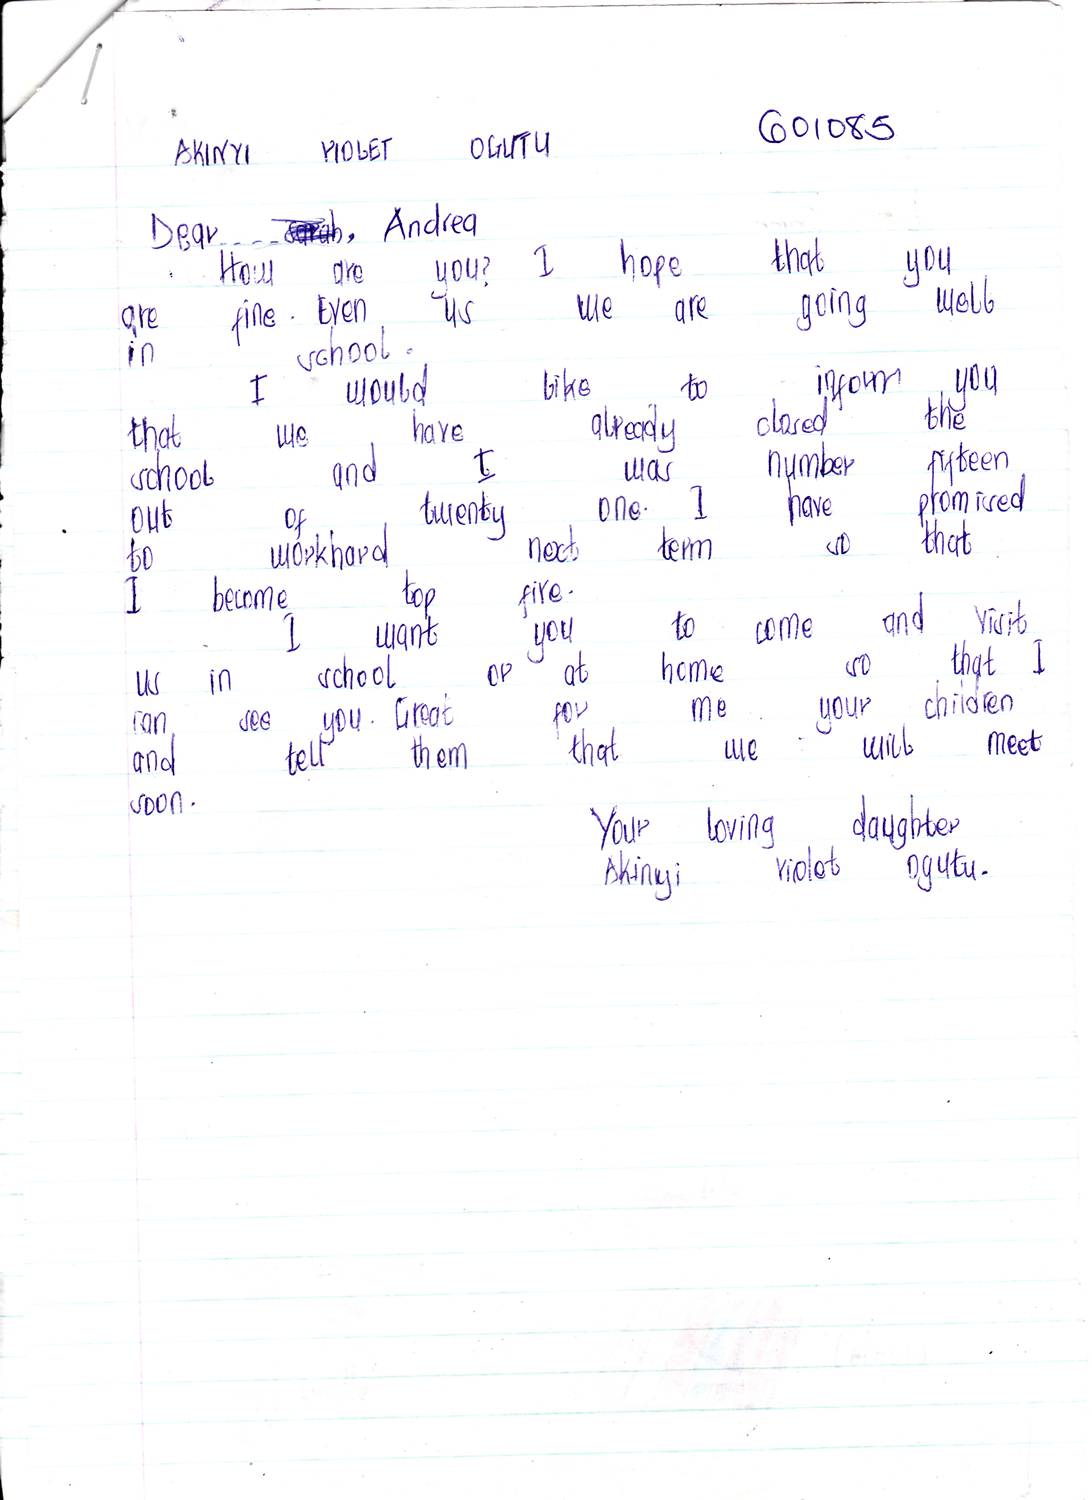 AKINYI VIOLET OGUTU 601085
Dear....Sarah, Andrea
How are you? I hope that you
are fine. Even us we are going well
in school.
I would like to inform you
that we have already closed the
school and I was number fifteen
out of twenty one. I have promised
to workhard next term so that
I become top five.
I want you to come and visit
us in school or at home so that I
can see you. Great for me your children
and tell them that we will meet
soon.
Your loving daughter
Akinyi violet Ogutu.